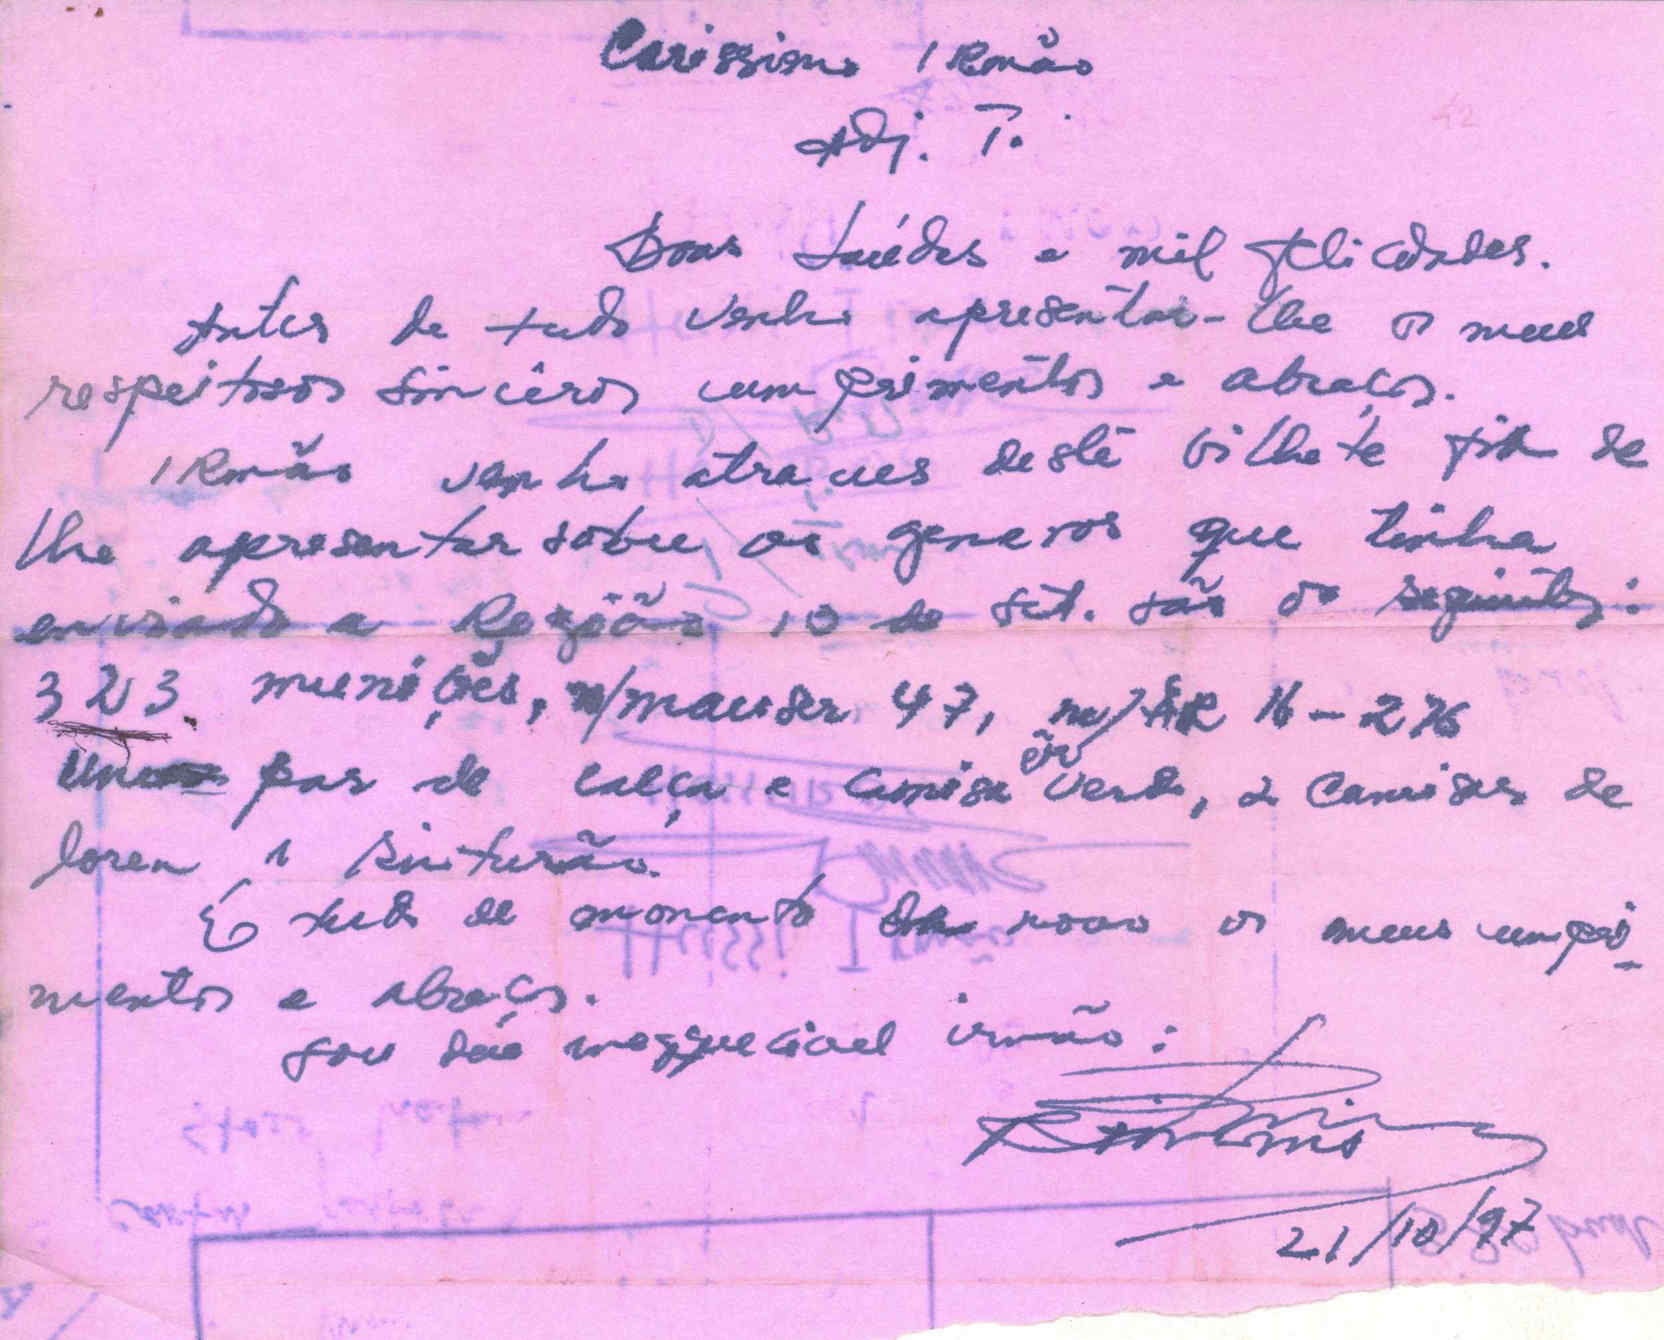 Carissimo IRmão
Adj. T.
Boas saúdas e mil felicidades.
Antes de tudo venho apresentar-lhe os meus
respeitosos sincêros cumprimentos e abraços.
IRmão venho atraves deste bilhete fim de
lhe apresentar sobre os generos que tinha
enviado a Região 10 de Set. são os seguintes:
323 munições, m/mauser 47, m/AR 16-276
Uma par de calça e camisa côr verde, 2 camisas de
loren 1 sinturão.
É tudo de momento de novo os meus cumpri-
mentos e abraços.
Sou seu inesquecivel irmão:
21/10/97